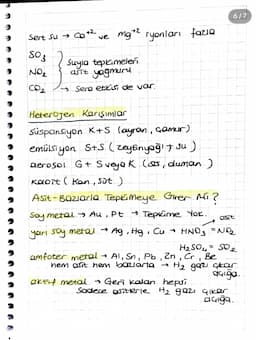 6/7
Sert su → Ca+2 ve Mg+2 iyonları fazla
SO3
NO2
CO2
Suyla tepkimeleri
asit yağmuru
→ Sera etkisi de var.
Heterojen Karışımlar
Süspansiyon K+S (ayran, çamur)
emülsiyon S+S (zeytinyağı + su)
aerosol G+S veya K (sis, duman)
Koloit (Kan, süt)
Asit-Bazlarla Tepkimeye Girer Mi?
Soy metal → Au, Pt → Tepkime Yok.
yarı soy metal → Ag, Hg, Cu → HNO3 = NO2
asit
H2SO4 = SO2
amfoter metal → Al, Sn, Pb, Zn, Cr, Be
hem asit hem bazlarla → H2 gazı çıkar
açığa.
aktif metal → Geri kalan hepsi
Sadece asitlerle H2 gazı çıkar
açığa.